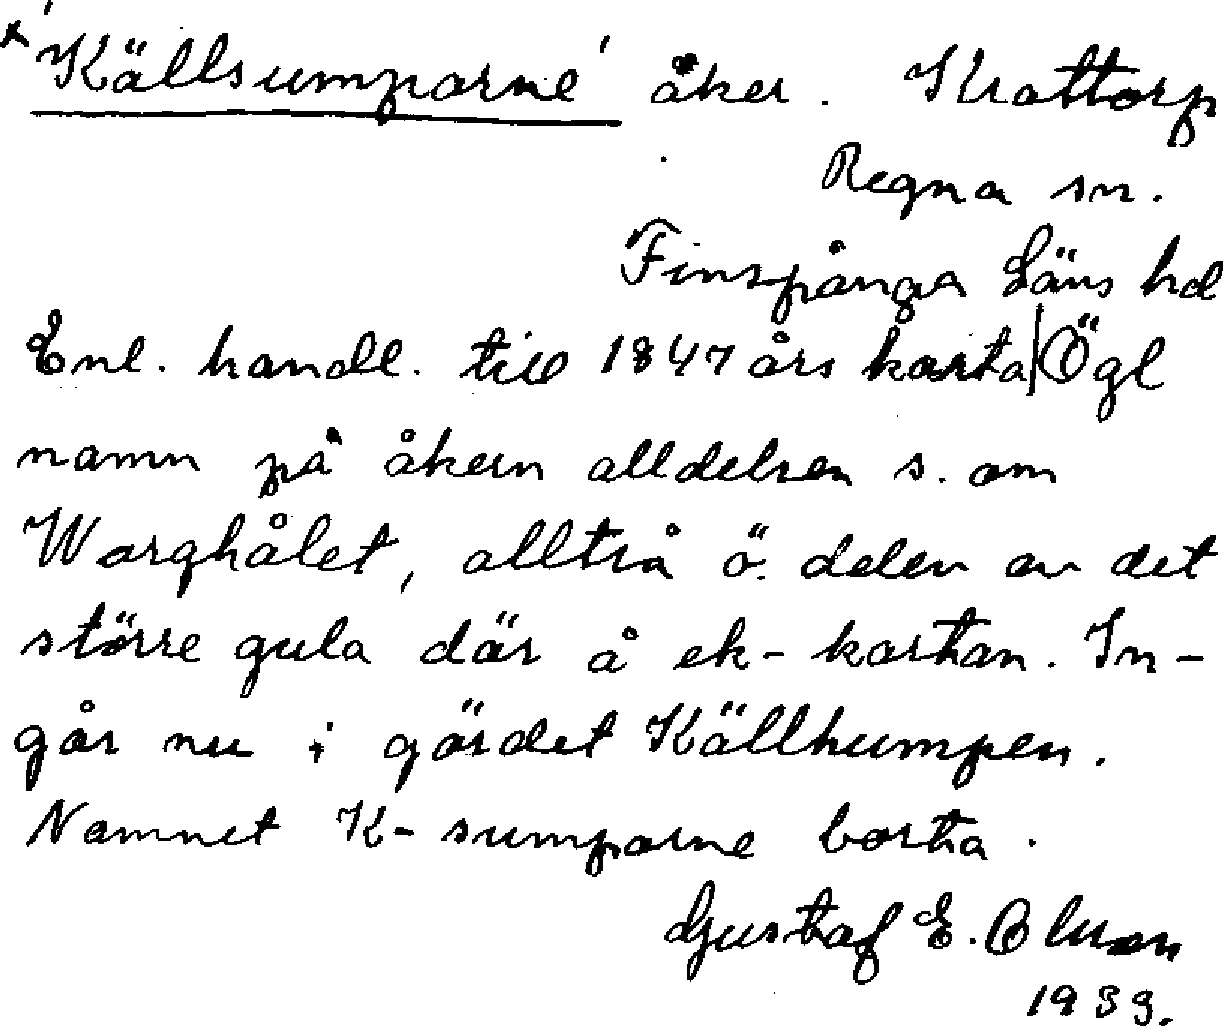 x 'Källsumparne' åker. Krattorp
Regna sn.
Finspånga Läns hd
Enl. handl. till 1847 års karta | Ögl
namn på åkern alldeles s. om
Warghålet, alltså ö. delen av det
större gula där å ek-kartan. In-
går nu i gärdet Källhumpen.
Namnet K-sumparne borta.
Gustaf E. Olsson
1933.